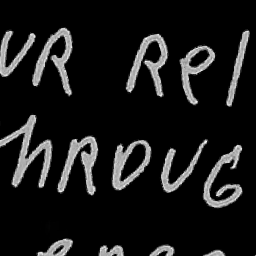 UR Rel
THROUG